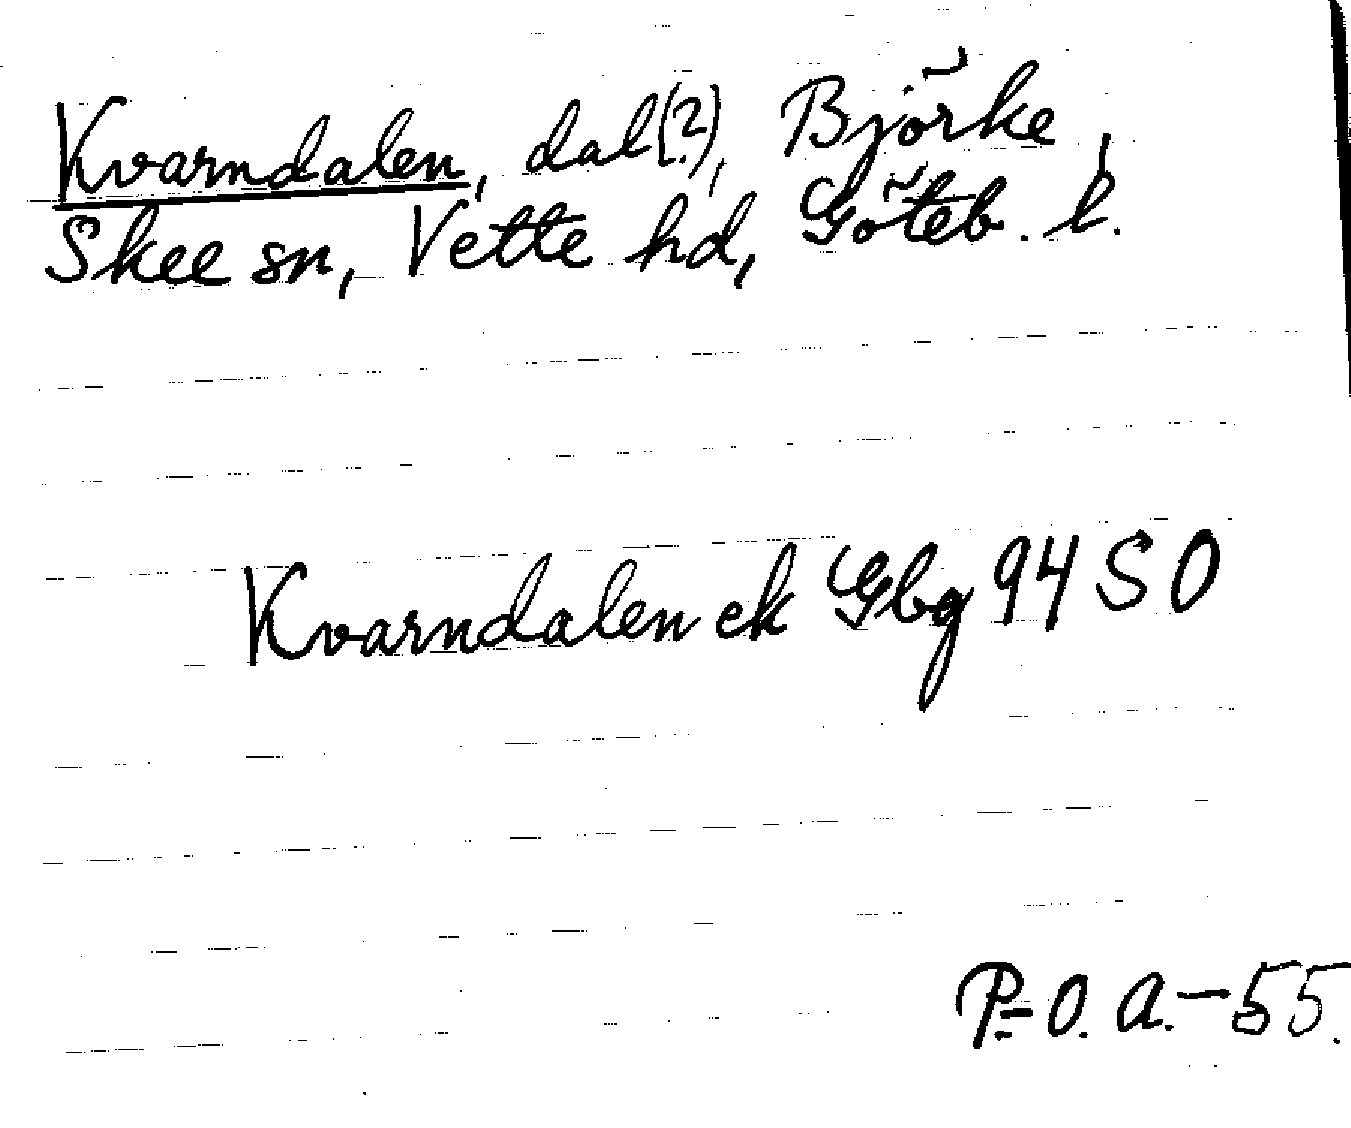 Kvarndalen, dal(?), Björke,
Skee sn, Vette hd, Göteb. l.
Kvarndalen ek Gbg 94 SO
P-O. A.-55.